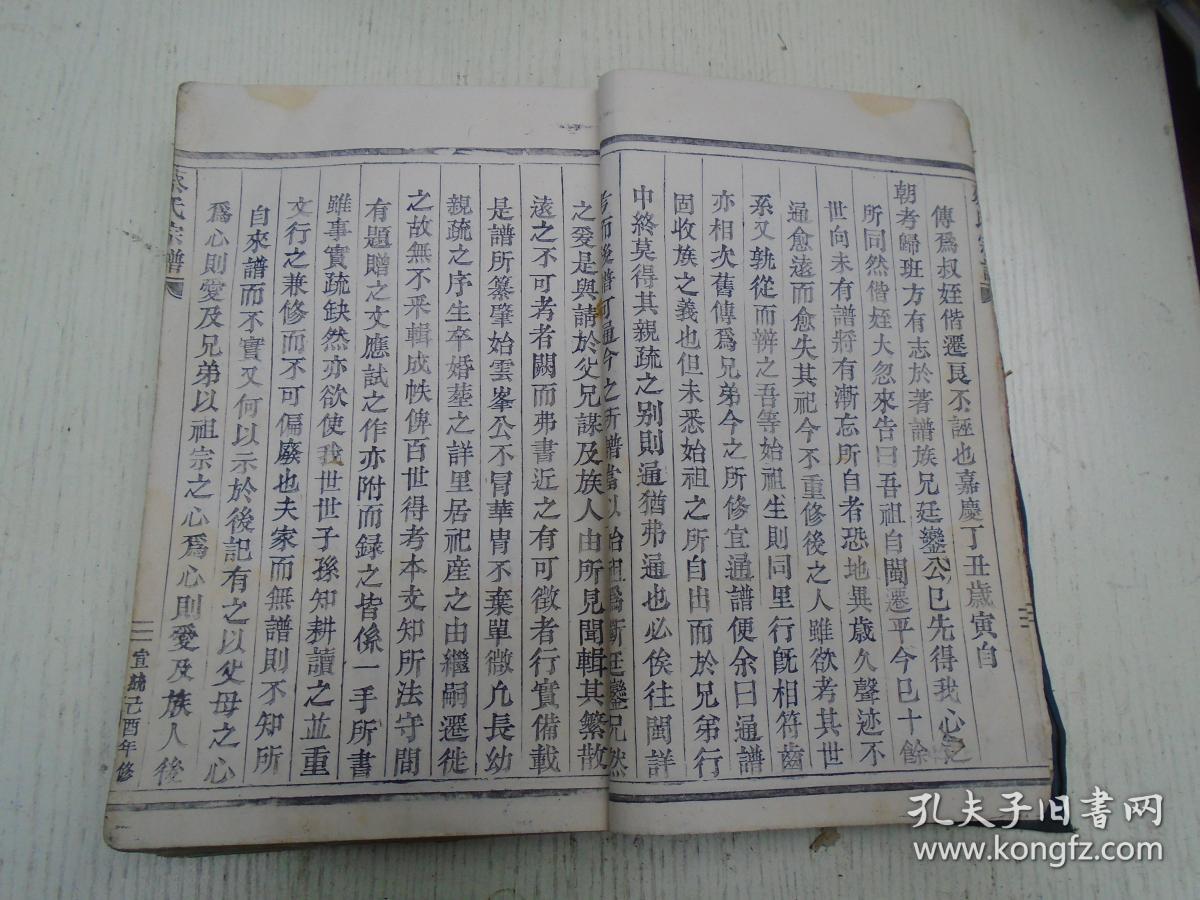 傳為叔姪偕遷良不誣也嘉慶丁丑歲寅自
朝考歸班方有志於著譜族兄廷鑾公已先得我心之
所同然偕姪大忽來告曰吾祖自閩遷平今已十餘
世向未有譜將有漸忘所自者恐地異歲久聲迹不
通愈遠而愈失其祀今不重修後之人雖欲考其世
系又孰從而辨之吾等始祖生則同里行旣相符齒
亦相次舊傳為兄弟今之所修宜通譜便余曰通譜
固收族之義也但未悉始祖之所自出而於兄弟行
中終莫得其親疏之别則通猶弗通也必俟往閩詳
考而後譜可通今之所譜當以始祖為斷廷鑾兄然
之爰是與請於父兄謀及族人由所見聞輯其繁散
遠之不可考者闕而弗書近之有可徵者行實備載
是譜所纂肇始雲峯公不冐華胄不棄單微凢長幼
親疏之序生卒婚塟之詳里居祀産之由繼嗣遷徙
之故無不釆輯成帙俾百世得考本支知所法守間
有題贈之文應試之作亦附而録之皆係一手所書
雖事實疏缺然亦欲使我世世子孫知耕讀之並重
文行之兼修而不可偏廢也夫家而無譜則不知所
自來譜而不實又何以示於後記有之以父母之心
為心則愛及兄弟以祖宗之心為心則愛及族人後
蔡氏宗譜
二
宣統己酉年修
孔夫子旧書网
www.kongfz.com